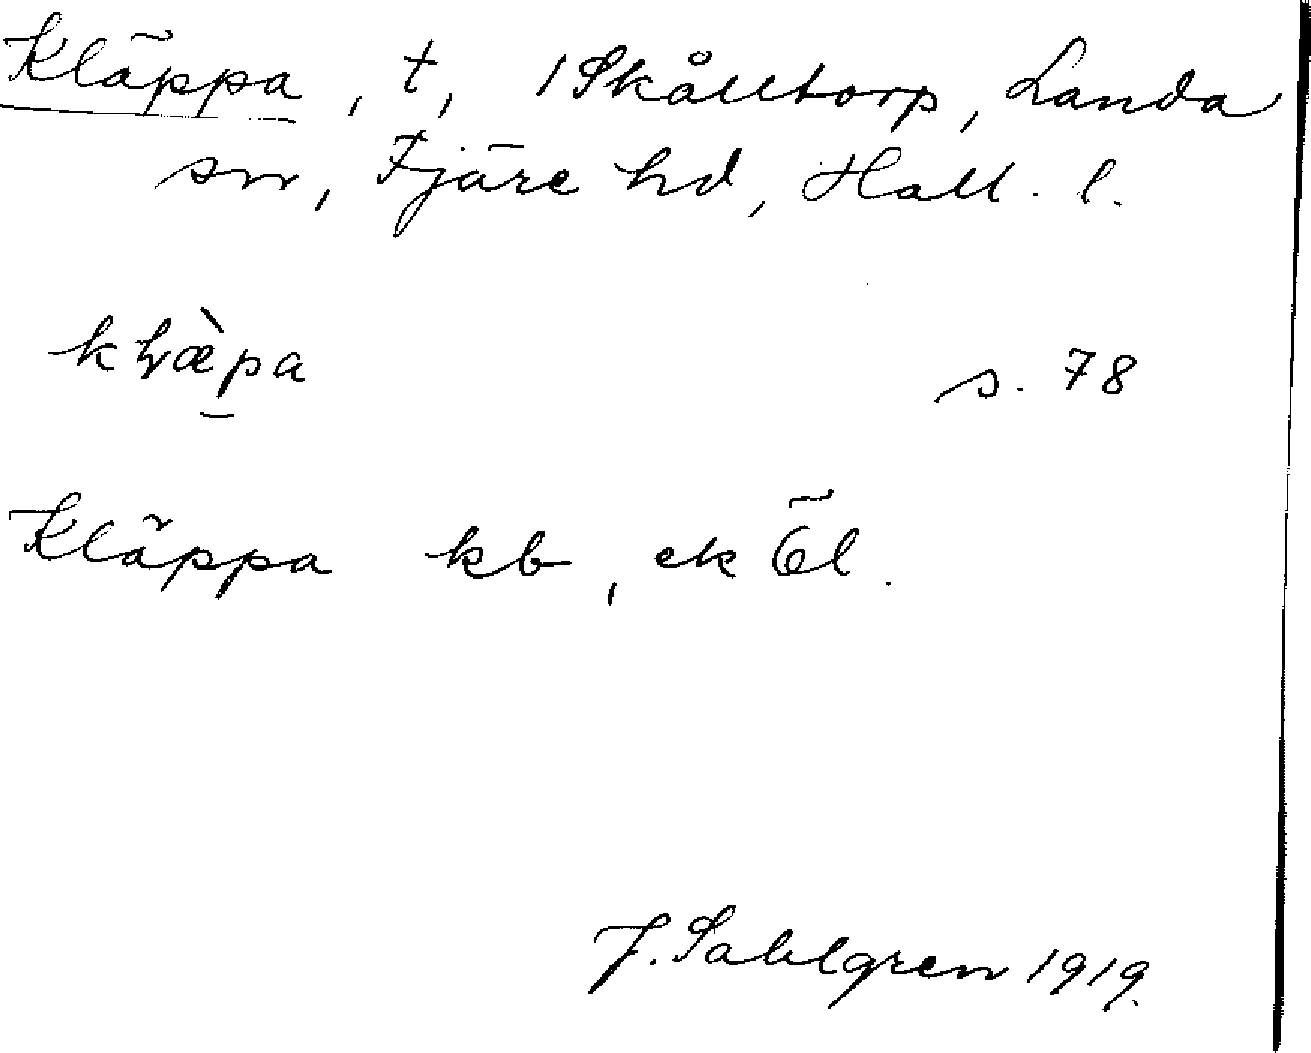 Kläppa, t, 1 Skålltorp, Landa
sn, Fjäre hd, Hall. l.
kḷæ̀p̱a s. 78
Kläppa kb, ek Öl.
J. Sahlgren 1919.